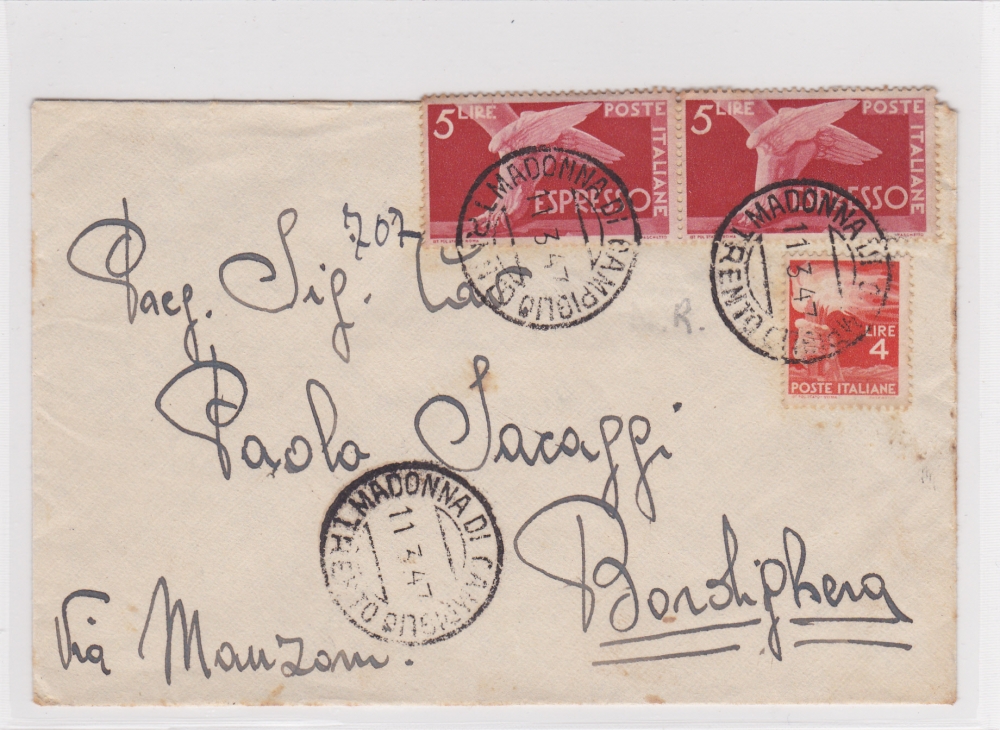 5 LIRE POSTE ITALIANE
ESPRESSO
5 LIRE POSTE ITALIANE
ESPRESSO
MADONNA DI CAMPIGLIO (TRENTO)
11 3 47
MADONNA DI CAMPIGLIO (TRENTO)
11 3 47
LIRE
4
POSTE ITALIANE
707
Sig.
R.
Paola Saraggi
MADONNA DI CAMPIGLIO (TRENTO)
11 3 47
Bordighera
Via Manzoni.